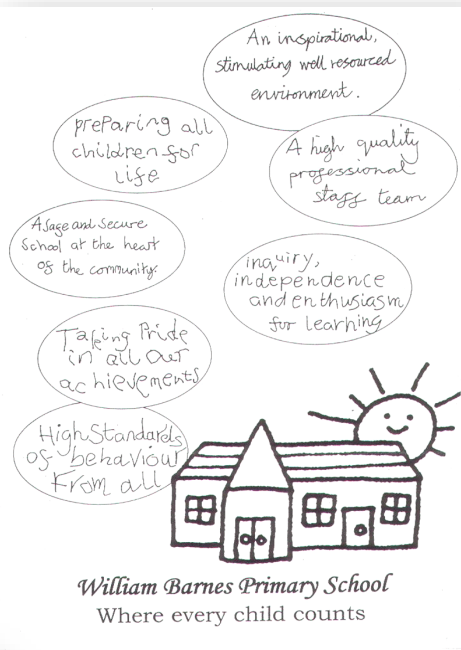 An inspirational,
stimulating well resourced
environment.
preparing all
children for
Life
A high quality
professional
staff team
A safe and Secure
School at the heart
of the community.
inquiry,
independence
and enthusiasm
for learning
Taking Pride
in all our
achievements
High Standards
of behaviour
From all
William Barnes Primary School
Where every child counts